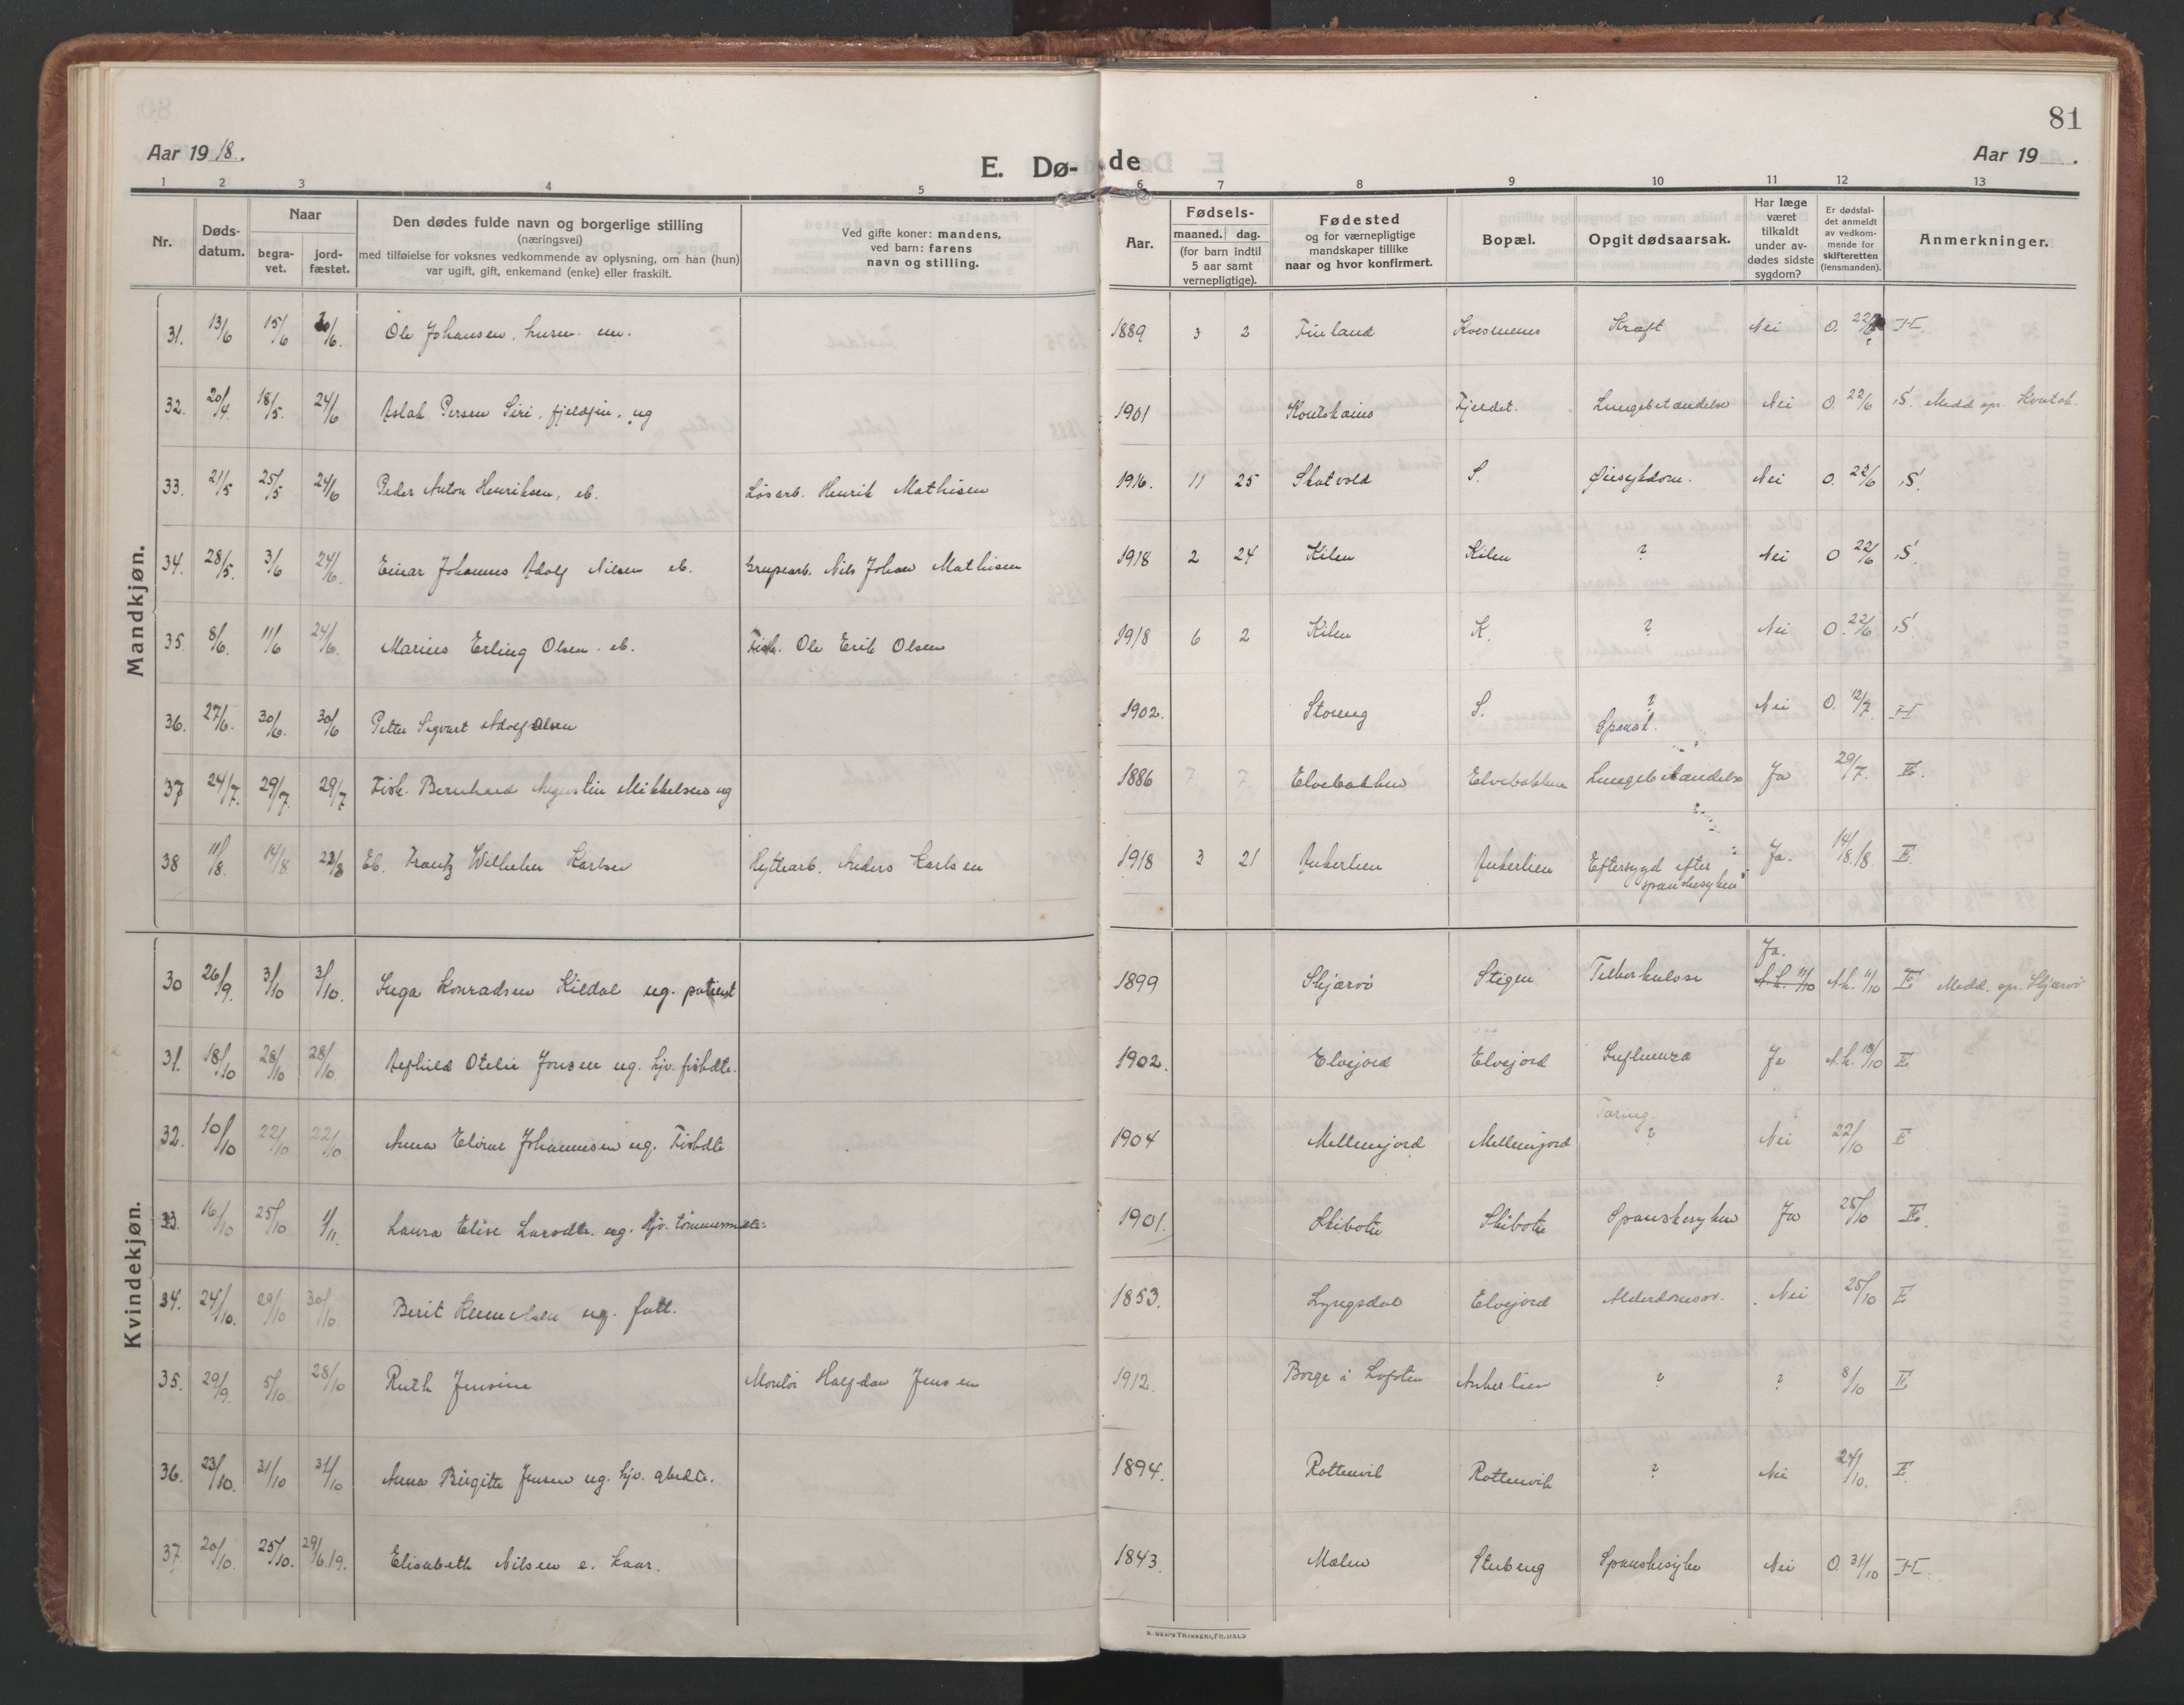 81
Aar 1918.
E. Dø- de
Aar 19 .
1 2 3 4 5 6 7 8 9 10 11 12 13
Nr.
Døds-
datum.
Naar
begra-
vet.
jord-
fæstet.
Den dødes fulde navn og borgerlige stilling
(næringsvei)
med tilføielse for voksnes vedkommende av oplysning, om han (hun)
var ugift, gift, enkemand (enke) eller fraskilt.
Ved gifte koner: mandens,
ved barn: farens
navn og stilling.
Aar.
Fødsels-
maaned. dag.
(for barn indtil
5 aar samt
vernepligtige).
Fødested
og for værnepligtige
mandskaper tillike
naar og hvor konfirmert.
Bopæl.
Opgit dødsaarsak.
Har læge
været
tilkaldt
under av-
dødes sidste
sygdom?
Er dødsfal-
det anmeldt
av vedkom-
mende for
skifteretten
(lensmanden).
Anmerkninger.
Mandkjøn.
31. 13/6 15/6 /6. Ole Johansen, husm. 1889 3 2 Finland Kræft Nei O. 22/6
32. 20/4 18/5. 24/6 Aslak Persen Siri, ug 1901 Fjeldet. Lungebetændelse Nei O. 22/6 S. Medd. spr. Koutok.
33. 21/5 25/5 24/6 Peder Anton Henriksen, eb. Løsarb. Henrik Mathisen 1916. 11 25 Skatvold S. Nei O. 22/6 S.
34. 28/5. 3/6 24/6. Einar Johannes Adolf Nilsen eb. Grupearb. Nils Johan Mathisen 1918 2 24 Kilen Kilen ? Nei O 22/6 S.
35. 8/6. 11/6 24/6. Marius Erling Olsen. eb. Fisk. Ole Erik Olsen 1918 6 2 Kilen K. ? Nei O. 22/6 S.
36. 27/6. 30/6. 30/6 Petter Sigvart Adolf Olsen 1902. Storeng S. ? Nei O. 12/7. H
37 24/7. 29/7 29/7 Fisk. Bernhard Augustin Mikkelsen ug 1886 7 7 Elvebakken Elvebakken Spansk. Lungebetændelse Ja 29/7. E.
38 11/8. 14/8. /8 Eb. Frantz Wilhelm Karlsen Hyttearb. Anders Karlsen 1918 3 21 Ankerlien Ankerlien Eftersygd efter
spanskesyken Ja. 14/8.18. E.
Kvindekjøn.
30 26/9. 3/10 3/10. Inga Konradsen Kildal ug. patient 1899 Skjærvø Stigen Tuberkulose Ja.
A.h. 11/10 A.h. 11/10 E Medd. spr. Skjærvø
31. 18/10 28/10 28/10 Otelie Jonsen ug. hjv. fiskdtr. 1902. Elvejord Elvejord Influenza Ja A.h. 18/10 E
32. 10/10 22/10 22/10 Anna Elvine Johannesen ug. Fiskdtr 1904 Mellemjord Mellemjord Tæring
? Nei 22/10 E
33. 16/10 25/10 1/11. Laura Elise Larsdtr. ug. hjv. tømmerm 1901. Skibotn Skibotn Spanskesyken Ja 25/10 E.
34. 24/10. 29/10 30/10. Berit Klemetsen ug. fatt. 1853. Lyngsdal Elvejord Alderdomssv. Nei 25/10 E
35. 29/9. 5/10. 28/10 Ruth Jensine Montør Halfdan Jensen 1912. Borge i Lofoten Ankerlien ? ? 8/10 E
36. 23/10. 31/10 31/10 Anna Birgitte Jensen ug. hjv. gbrdtr. 1894. Rottenvik Rottenvik ? Nei 24/10. E
37. 20/10. 25/10. 29/6.19. Elisabeth Nilsen e. kaar. 1843. Malen Stubeng Spanskesyke Nei O. 31/10 H.